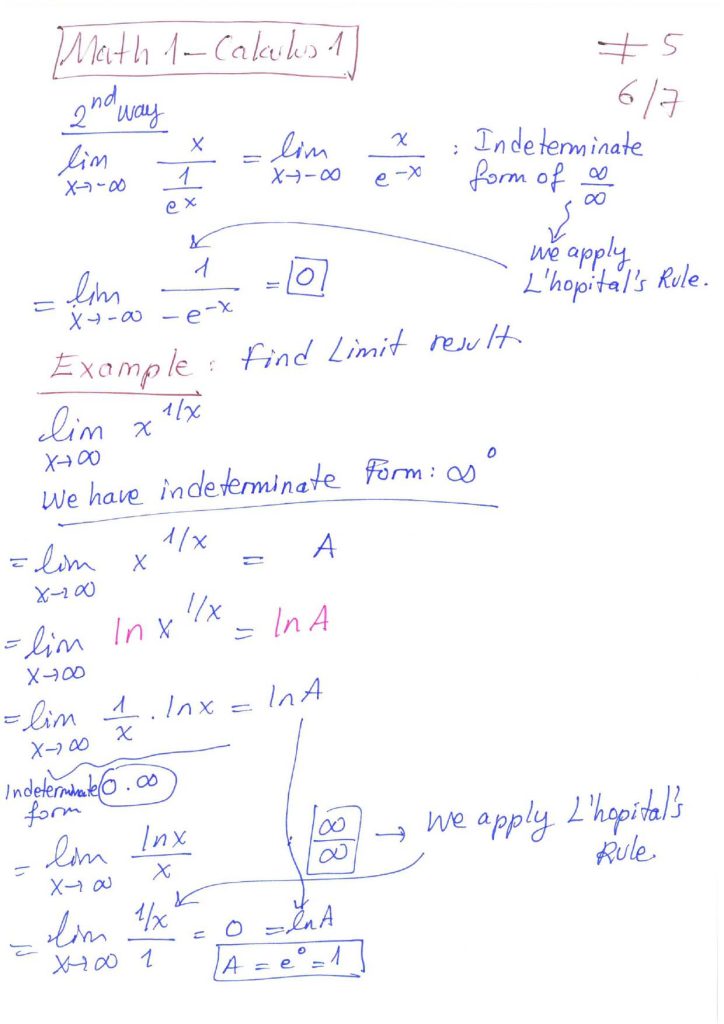 Math 1 – Calculus 1
# 5
6/7
2nd way
lim x→-∞ x/(1/e^x) = lim x→-∞ x/e^-x : Indeterminate form of ∞/∞
we apply L'hopital's Rule.
= lim x→-∞ 1/-e^-x = 0
Example: Find Limit result
lim x→∞ x^1/x
We have indeterminate Form: ∞^0
= lim x→∞ x^1/x = A
= lim x→∞ ln x^1/x = ln A
= lim x→∞ 1/x . lnx = ln A
Indeterminate form 0.∞
= lim x→∞ lnx/x ∞/∞ → We apply L'hopital's Rule.
= lim x→∞ (1/x)/1 = 0 = lnA
A = e^0 = 1